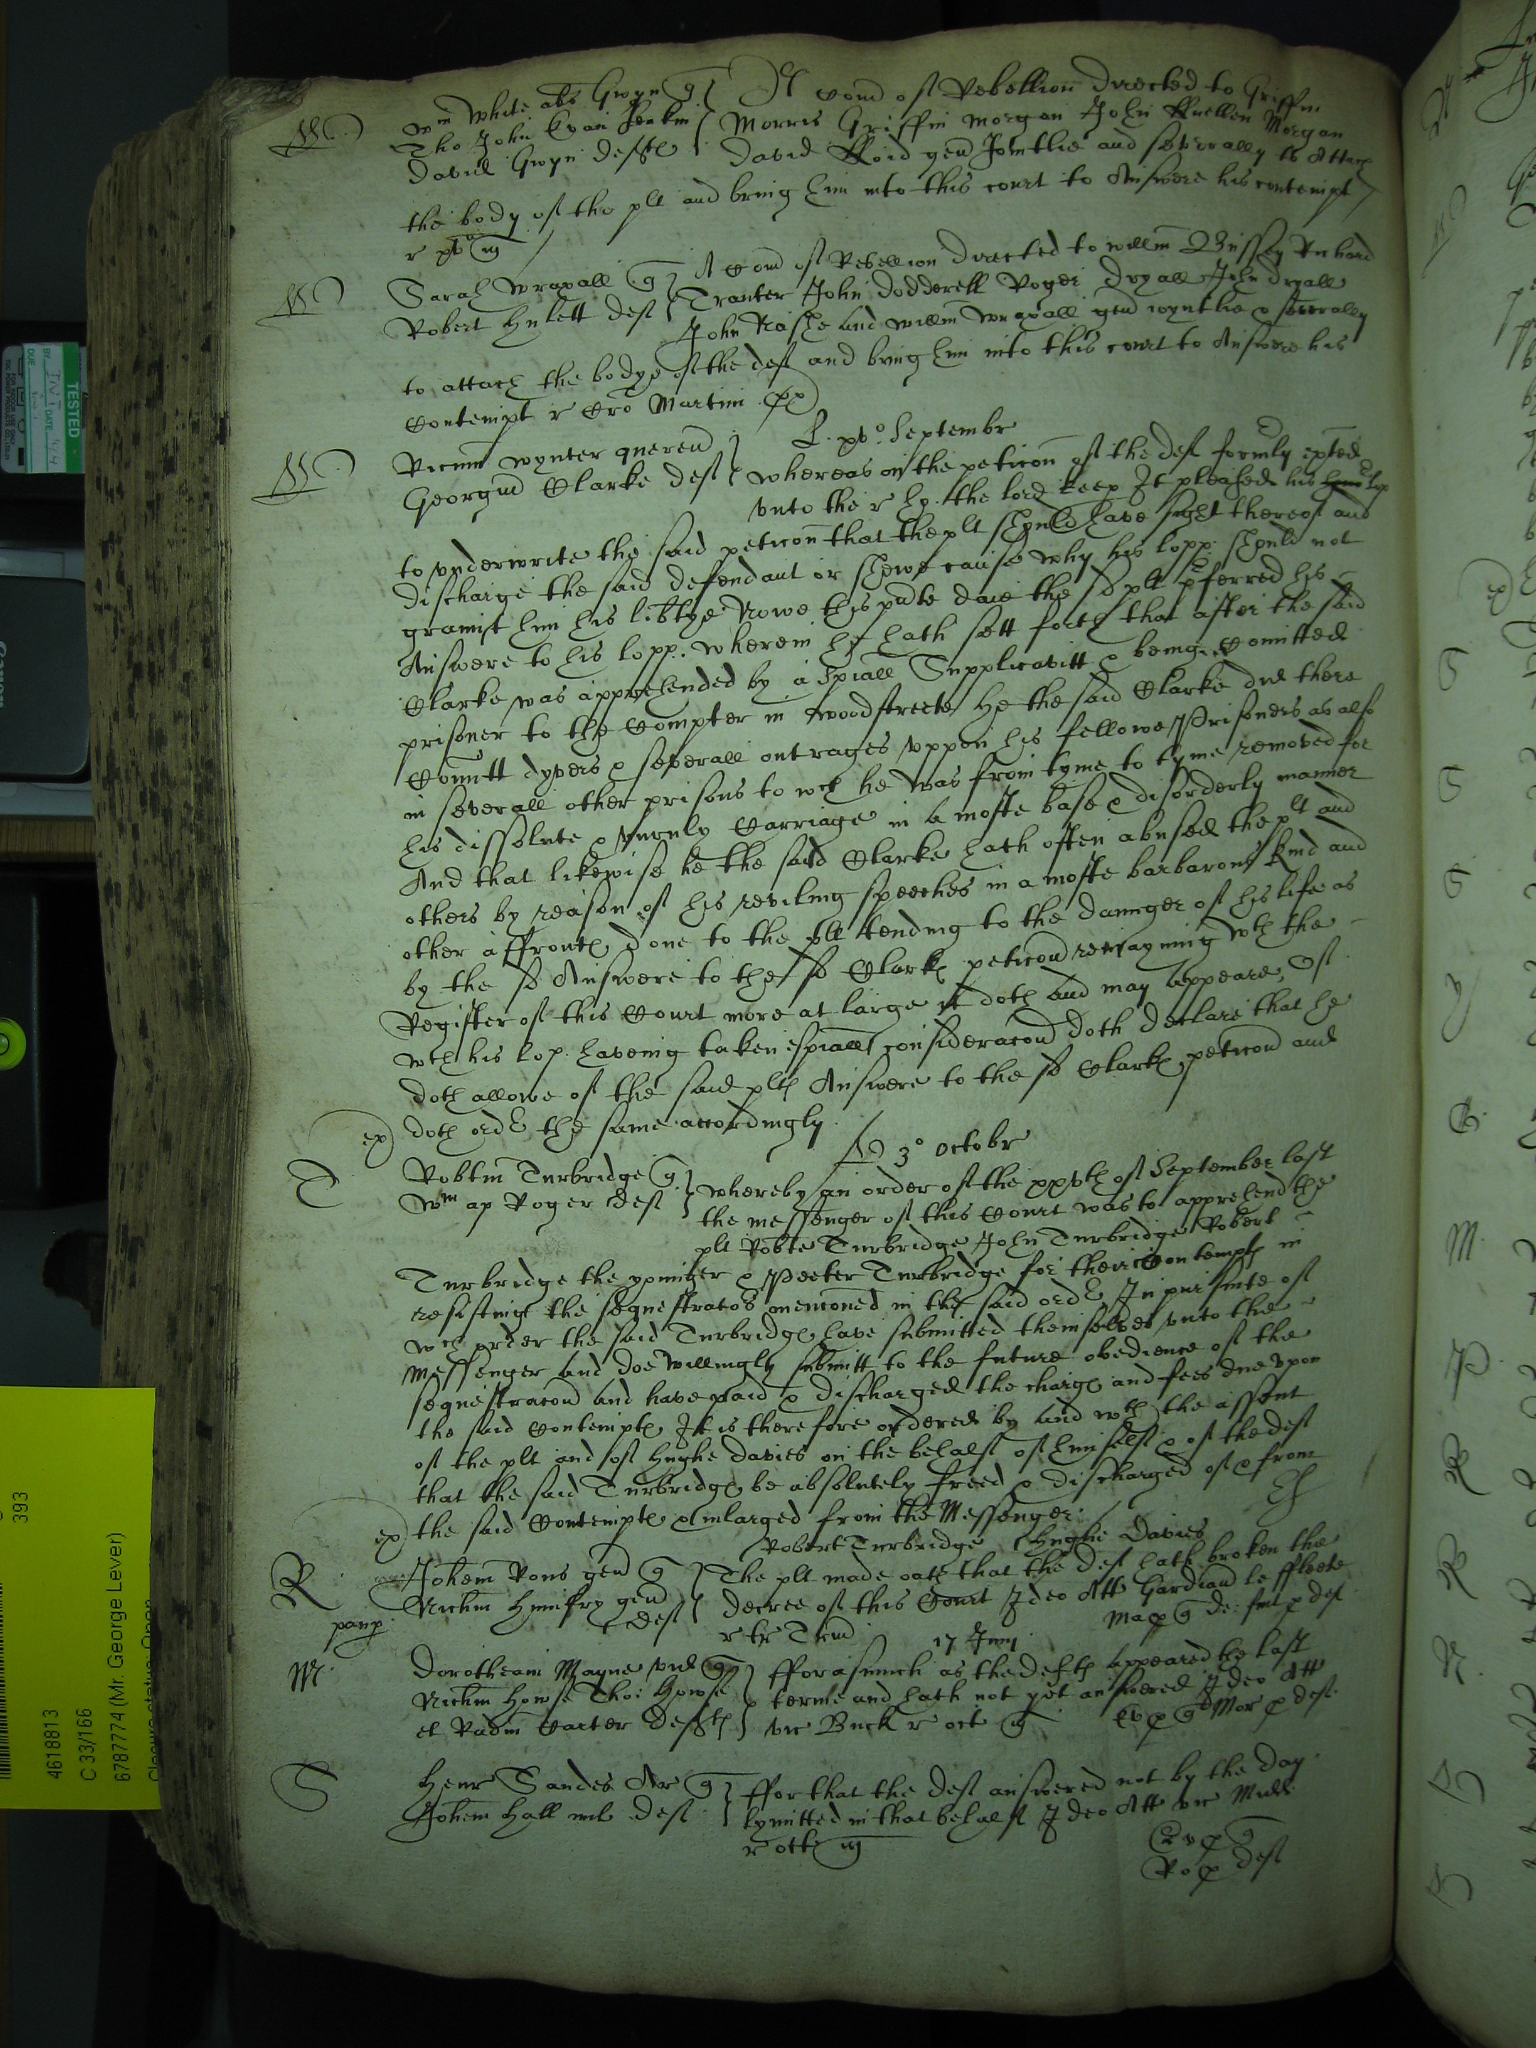 W
Wm White als Gwyn q
A Com of Rebellion directed to Griffin
Tho John Evan Jenkin
Morris Griffin Morgan John fluellen Morgan
David Gwyn deftes
David lloid gen Jointlie and severally to Attach
the body of the plt and bring him into this court to Answere his contempt
W
Sarah Wraxall q
A Com of Rebellion directed to willm Richard
Robert Hulett def
Tranter John Dodderell Roger Dryall John Dryall
John Nashe and willm Wraxall gen Joyntlie & severally
to attach the bodye of the def and bring him into this court to Answere his
Contempt r Cro Martini
W
L. xvo Septembr
Ricum wynter queren
Georgiu Clarke def
whereas on the peticon of the def formly exhted
unto the r ho. the lord keep It pleased his Lop
to underwrite the said peticon that the plt should have sight thereof and
discharge the said defendant or shewe cause why his Lopp. should not
graunt him his libtye Nowe this pnte daie the sd plt pferred his
Answere to his Lopp. wherein he hath sett forth that after the said
Clarke was apprehended by a Spiall Supplicavitt & being Comitted
prisoner to the Compter in woodstreete he the said Clarke did there
Comitt dyvers & severall outrages uppon his fellowe Prisoners as also
in severall other prisons to wch he was from tyme to tyme removed for
his dissolute & unruly Carriage in a moste base & disorderly manner
And that likewise he the said Clarke hath often abused the plt and
others by reason of his reviling speeches in a moste barbarous kind and
other affrontes done to the plt tending to the daunger of his life as
by the sd Answere to the sd Clarkes peticon remayning wth the
Register of this Court more at large it doth and may appeare, Of
wch his Lop. haveing taken espiall consideracon doth declare that he
doth allowe of the said pltes Answere to the sd Clarkes peticon and
ex doth order the same accordingly
3o Octobr
T
Robtm Turbridge q
Wm ap Roger def
whereby an order of the xxvth of September last
the messenger of this Court was to apprehend the
plt Robte Turbridge John Turbridge Robert
Turbridge the younger & Peeter Turbridge for their Contemptes in
resisting the sequestrators mencioned in the said order In pursuite of
wch order the said Turbridges have submitted themselves unto the
Messenger and doe willingly submitt to the future obedience of the
sequestracon and have paid & discharged the charges and fees due upon
the said Contemptes It is therefore ordered by and wth the assent
of the plt and of Hughe Davies on the behalf of himself & of the def
that the said Turbridges be absolutely freed & discharged of & from
ex the said Contemptes & inlarged from the Messenger
Robert Turbridge Hughe Davies
R
Johem Rous gen q
The plt made oath that the def hath broken the
Richm Humfry gen def
decree of this Court Ideo Att Gardian le ffleete
paup
r tr Trin
17 Junij
M
Dorotheam Mayne vid q
fforasmuch as the deftes appeared the last
Richm Howse Tho: Howse
terme and hath not yet answered Ideo Att
et Radm Carter deftes
vic Buck r oct
S
Henr Sandes Ar q
ffor that the def answered not by the day
Johem Hall mil def
lymitted in that behalf Ideo Att vic Midd
r oct
Ro p def
TESTED
BY
DATE
DUE
Canon
393
4618813
C 33/166
6787774 (Mr. George Lever)